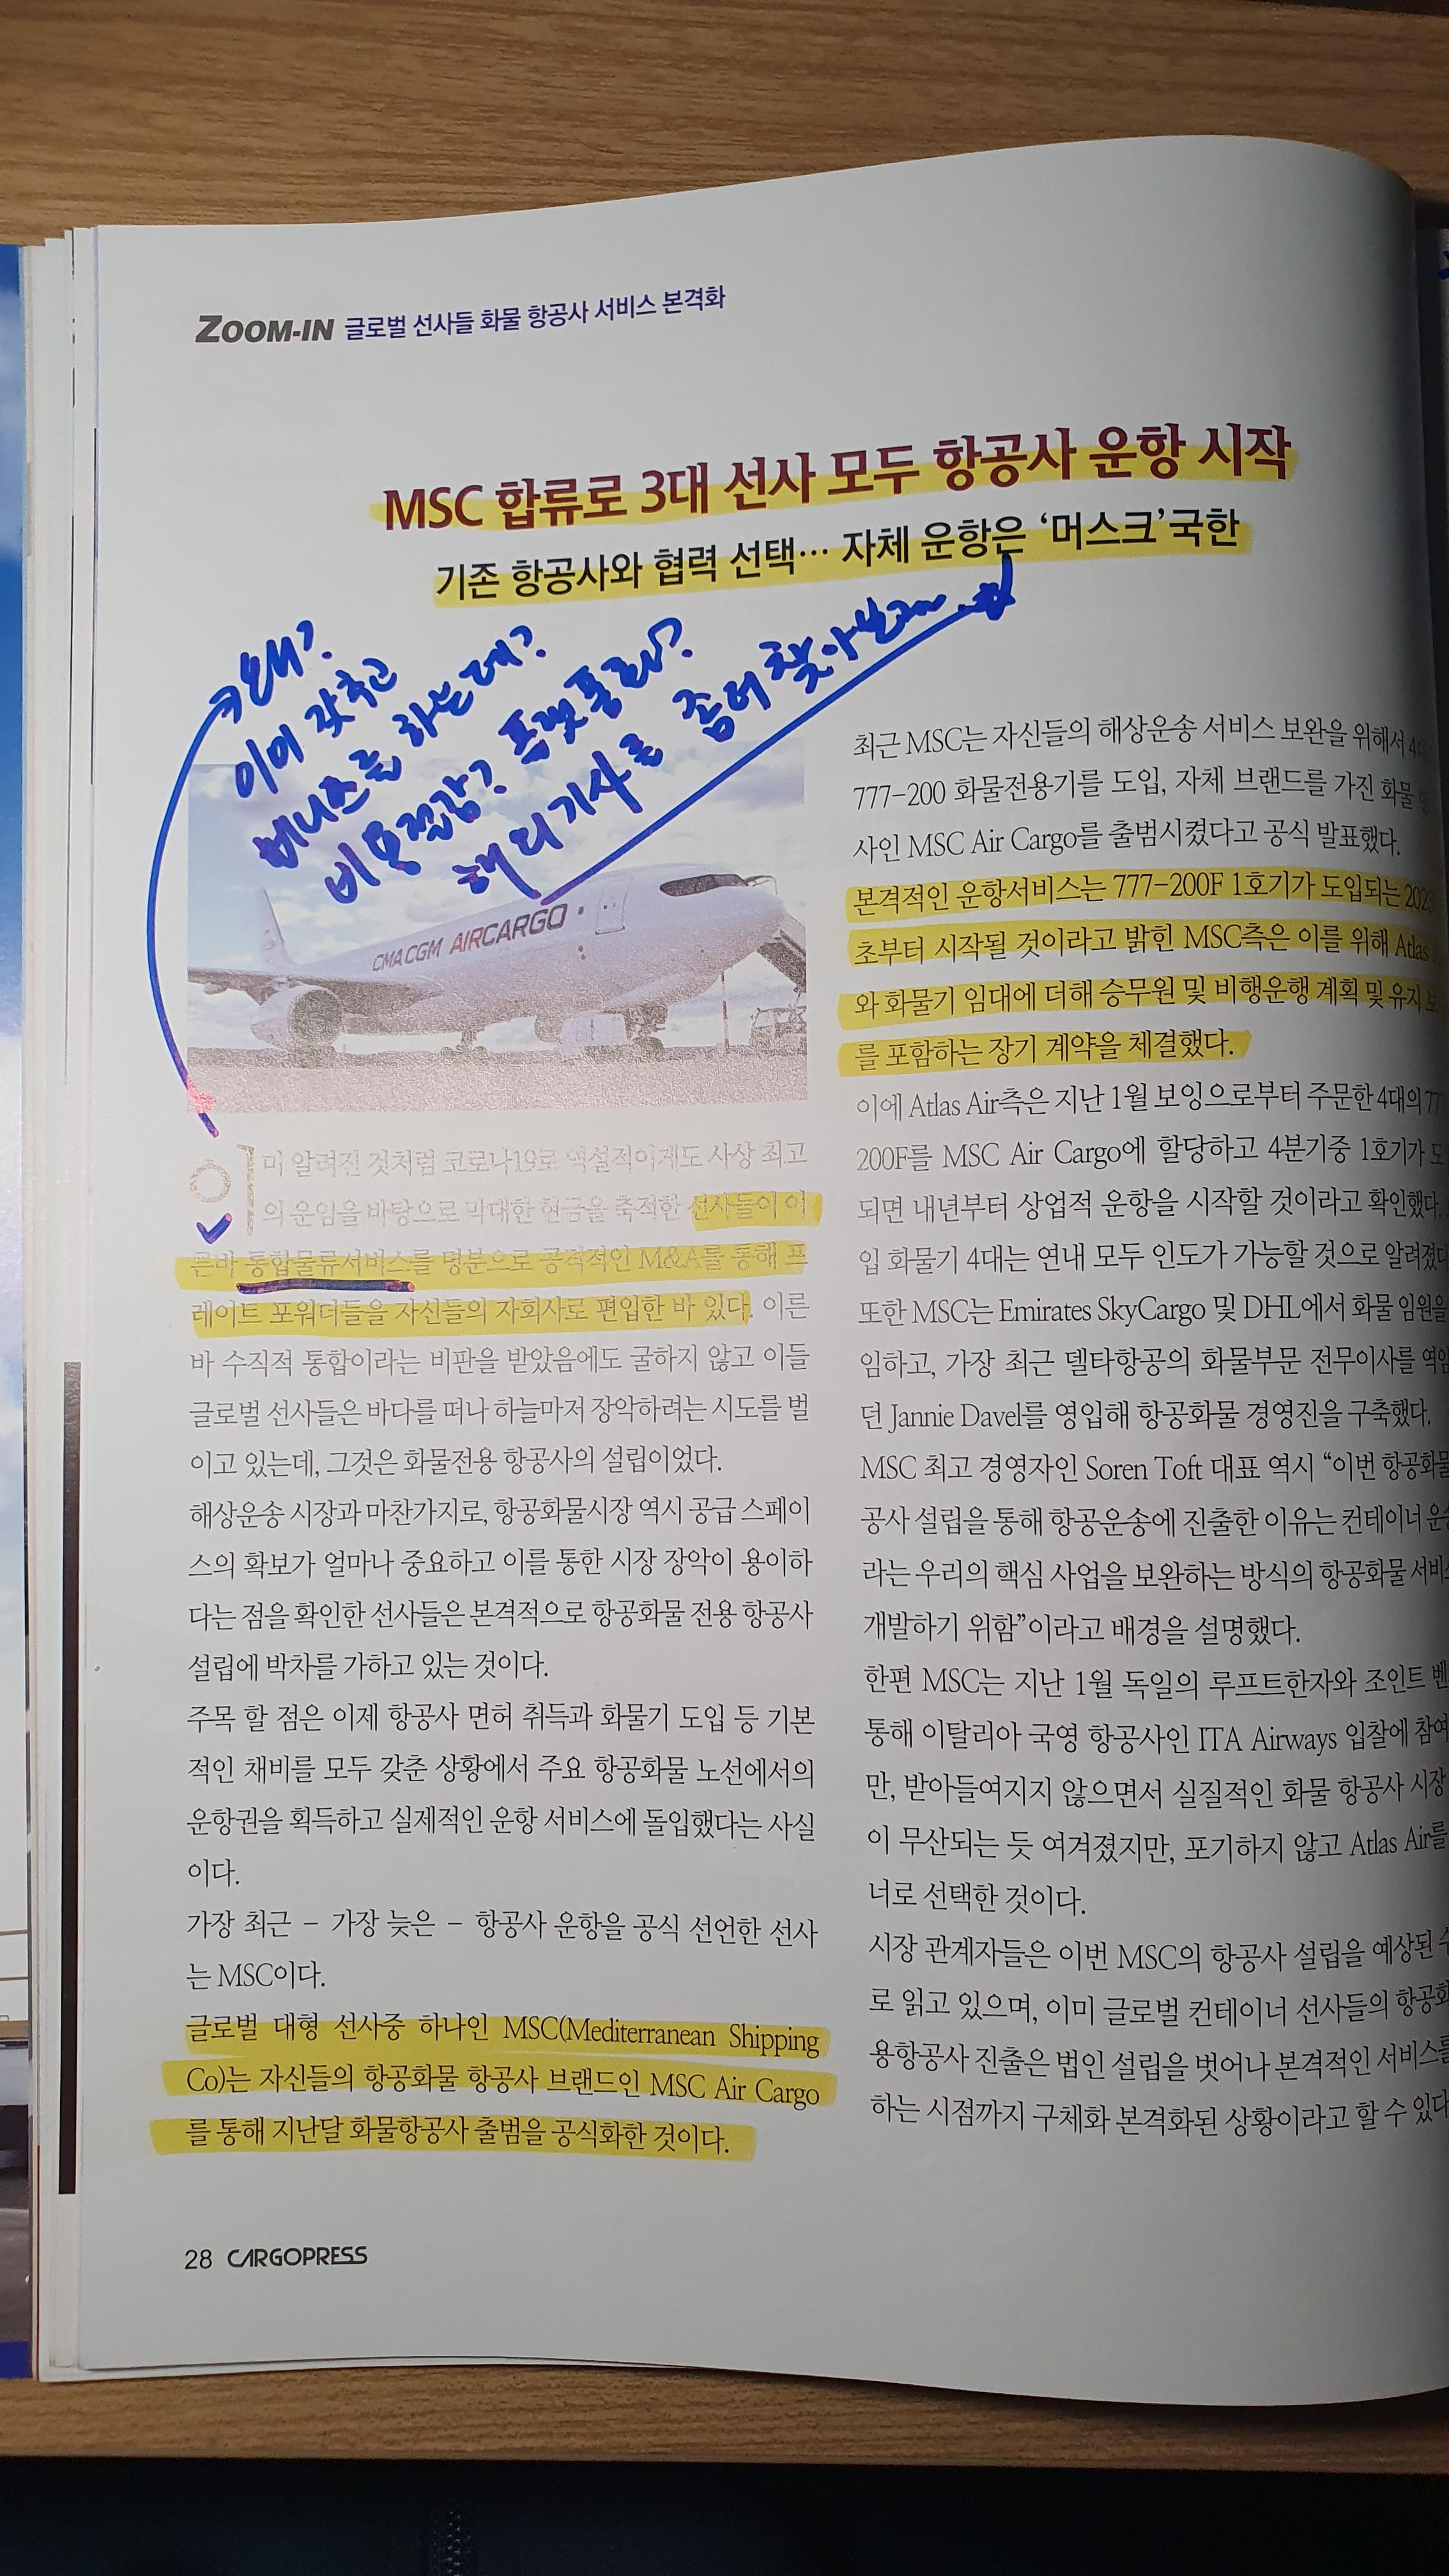 ZOOM-IN 글로벌 선사들 화물 항공사 서비스 본격화
MSC 합류로 3대 선사 모두 항공사 운항 시작
기존 항공사와 협력 선택… 자체 운항은 ‘머스크’국한
왜?
이미 갖추고
비니즈를 하는데?
비용절감? 플랫폼?
해외기사를 좀더 찾아보고
CMA CGM AIRCARGO
이미 알려진 것처럼 코로나19로 역설적이게도 사상 최고
의 운임을 바탕으로 막대한 현금을 축적한 선사들이 이
른바 통합물류서비스를 명분으로 공격적인 M&A를 통해 프
레이트 포워더들을 자신들의 자회사로 편입한 바 있다. 이른
바 수직적 통합이라는 비판을 받았음에도 굴하지 않고 이들
글로벌 선사들은 바다를 떠나 하늘마저 장악하려는 시도를 벌
이고 있는데, 그것은 화물전용 항공사의 설립이었다.
해상운송 시장과 마찬가지로, 항공화물시장 역시 공급 스페이
스의 확보가 얼마나 중요하고 이를 통한 시장 장악이 용이하
다는 점을 확인한 선사들은 본격적으로 항공화물 전용 항공사
설립에 박차를 가하고 있는 것이다.
주목 할 점은 이제 항공사 면허 취득과 화물기 도입 등 기본
적인 채비를 모두 갖춘 상황에서 주요 항공화물 노선에서의
운항권을 획득하고 실제적인 운항 서비스에 돌입했다는 사실
이다.
가장 최근 – 가장 늦은 – 항공사 운항을 공식 선언한 선사
는 MSC이다.
글로벌 대형 선사중 하나인 MSC(Mediterranean Shipping
Co)는 자신들의 항공화물 항공사 브랜드인 MSC Air Cargo
를 통해 지난달 화물항공사 출범을 공식화한 것이다.
최근 MSC는 자신들의 해상운송 서비스 보완을 위해서
777-200 화물전용기를 도입, 자체 브랜드를 가진 화물
사인 MSC Air Cargo를 출범시켰다고 공식 발표했다.
본격적인 운항서비스는 777-200F 1호기가 도입되는
초부터 시작될 것이라고 밝힌 MSC측은 이를 위해 Atlas
와 화물기 임대에 더해 승무원 및 비행운행 계획 및 유지
를 포함하는 장기 계약을 체결했다.
이에 Atlas Air측은 지난 1월 보잉으로부터 주문한 4대의
200F를 MSC Air Cargo에 할당하고 4분기중 1호기가
되면 내년부터 상업적 운항을 시작할 것이라고 확인했다.
입 화물기 4대는 연내 모두 인도가 가능할 것으로 알려졌다
또한 MSC는 Emirates SkyCargo 및 DHL에서 화물 임원을
임하고, 가장 최근 델타항공의 화물부문 전무이사를 역임
던 Jannie Davel를 영입해 항공화물 경영진을 구축했다.
MSC 최고 경영자인 Soren Toft 대표 역시 “이번 항공화물
공사 설립을 통해 항공운송에 진출한 이유는 컨테이너
라는 우리의 핵심 사업을 보완하는 방식의 항공화물 서비스
개발하기 위함”이라고 배경을 설명했다.
한편 MSC는 지난 1월 독일의 루프트한자와 조인트
통해 이탈리아 국영 항공사인 ITA Airways 입찰에 참여
만, 받아들여지지 않으면서 실질적인 화물 항공사 시장
이 무산되는 듯 여겨졌지만, 포기하지 않고 Atlas Air를
너로 선택한 것이다.
시장 관계자들은 이번 MSC의 항공사 설립을 예상된
로 읽고 있으며, 이미 글로벌 컨테이너 선사들의
용항공사 진출은 법인 설립을 벗어나 본격적인 서비스를
하는 시점까지 구체화 본격화된 상황이라고 할 수 있다
28 CARGOPRESS